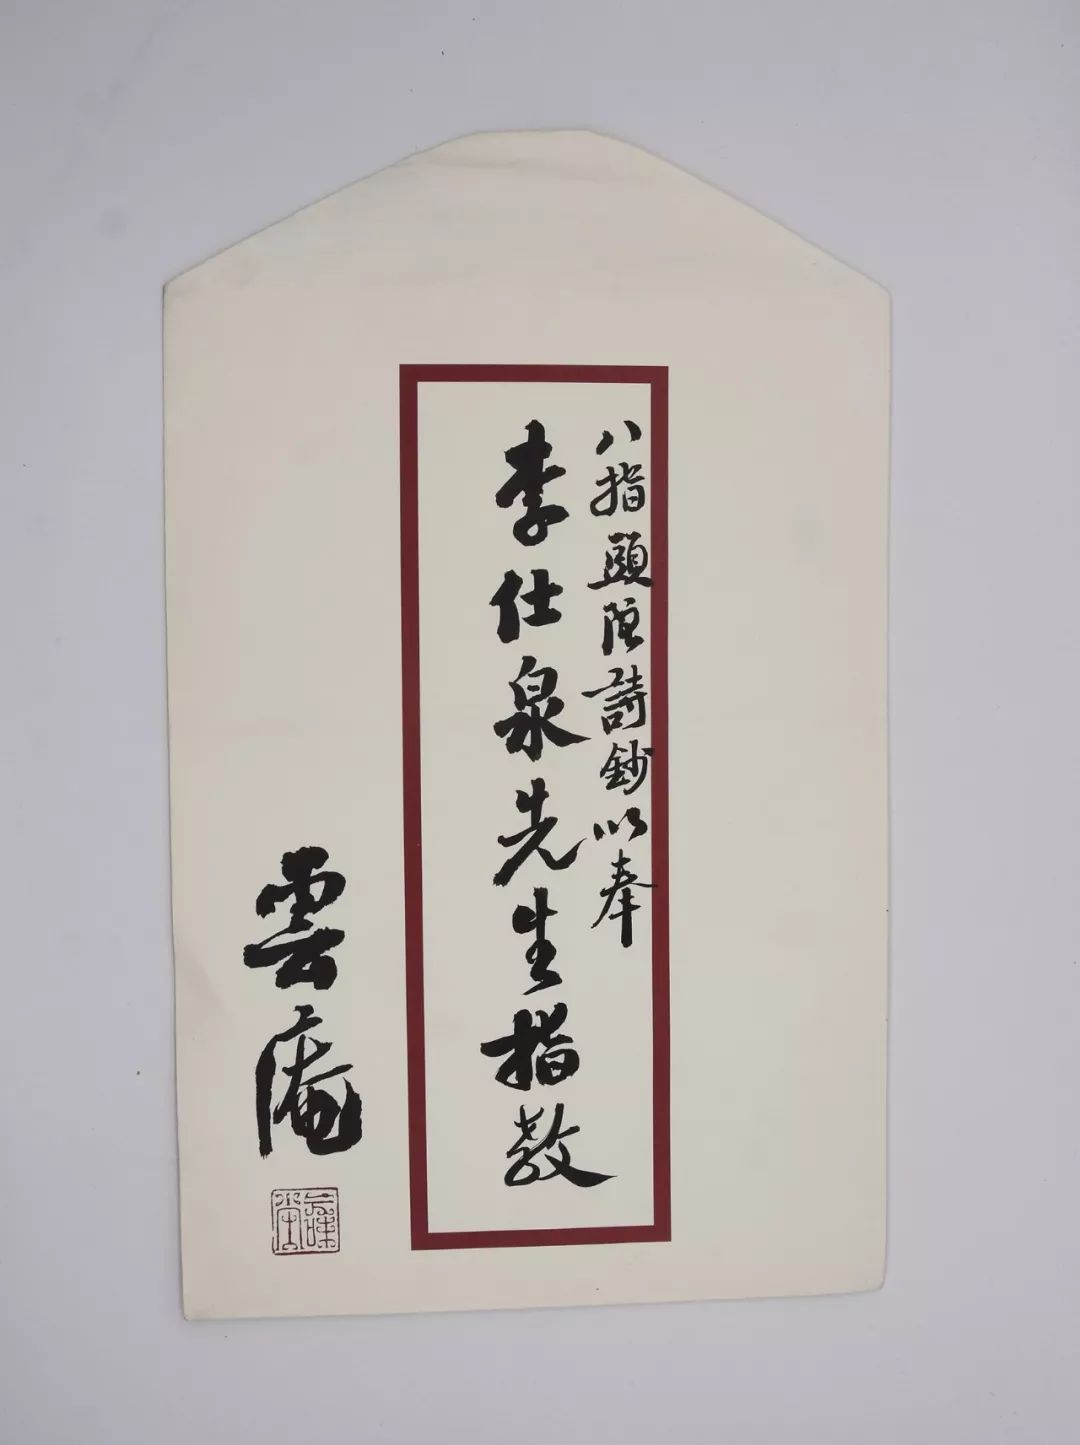 八指頭陀詩鈔以奉
李仕泉先生指教
雲庵